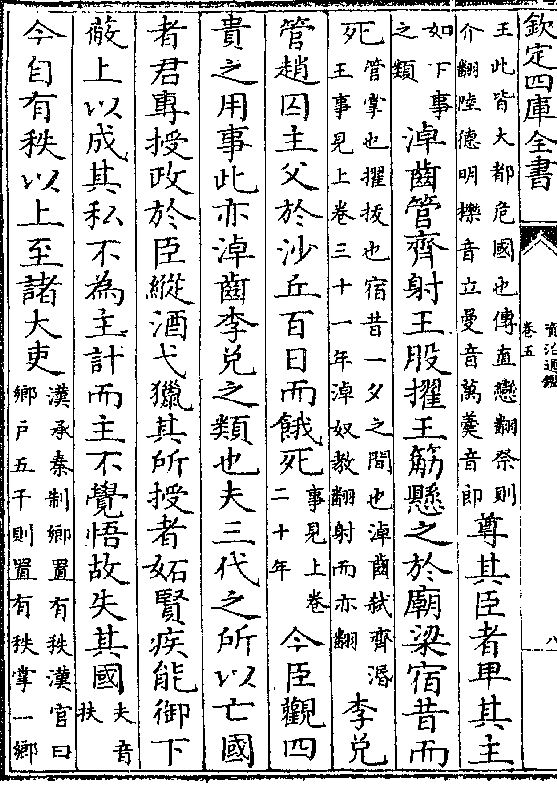 欽定四庫全書
資治通鑑
卷五
八
王此皆大都危國也傳直戀翻祭則
介翻陸德明櫟音立曼音萬羮音郎
尊其臣者卑其主
如下事
之類
淖齒管齊射王股擢王筋懸之於廟梁宿昔而
死
管掌也擢拔也宿昔一夕之間也淖齒弑齊湣
王事見上卷三十一年淖奴教翻射而亦翻
李兑
管趙囚主父於沙丘百日而餓死
事見上卷
二十年
今臣觀四
貴之用事此亦淖齒李兑之類也夫三代之所以亡國
者君專授政於臣縱酒弋獵其所授者妬賢疾能御下
蔽上以成其私不為主計而主不覺悟故失其國
夫音
扶
今自有秩以上至諸大吏
漢承秦制鄉置有秩漢官曰
鄉户五千則置有秩掌一鄉